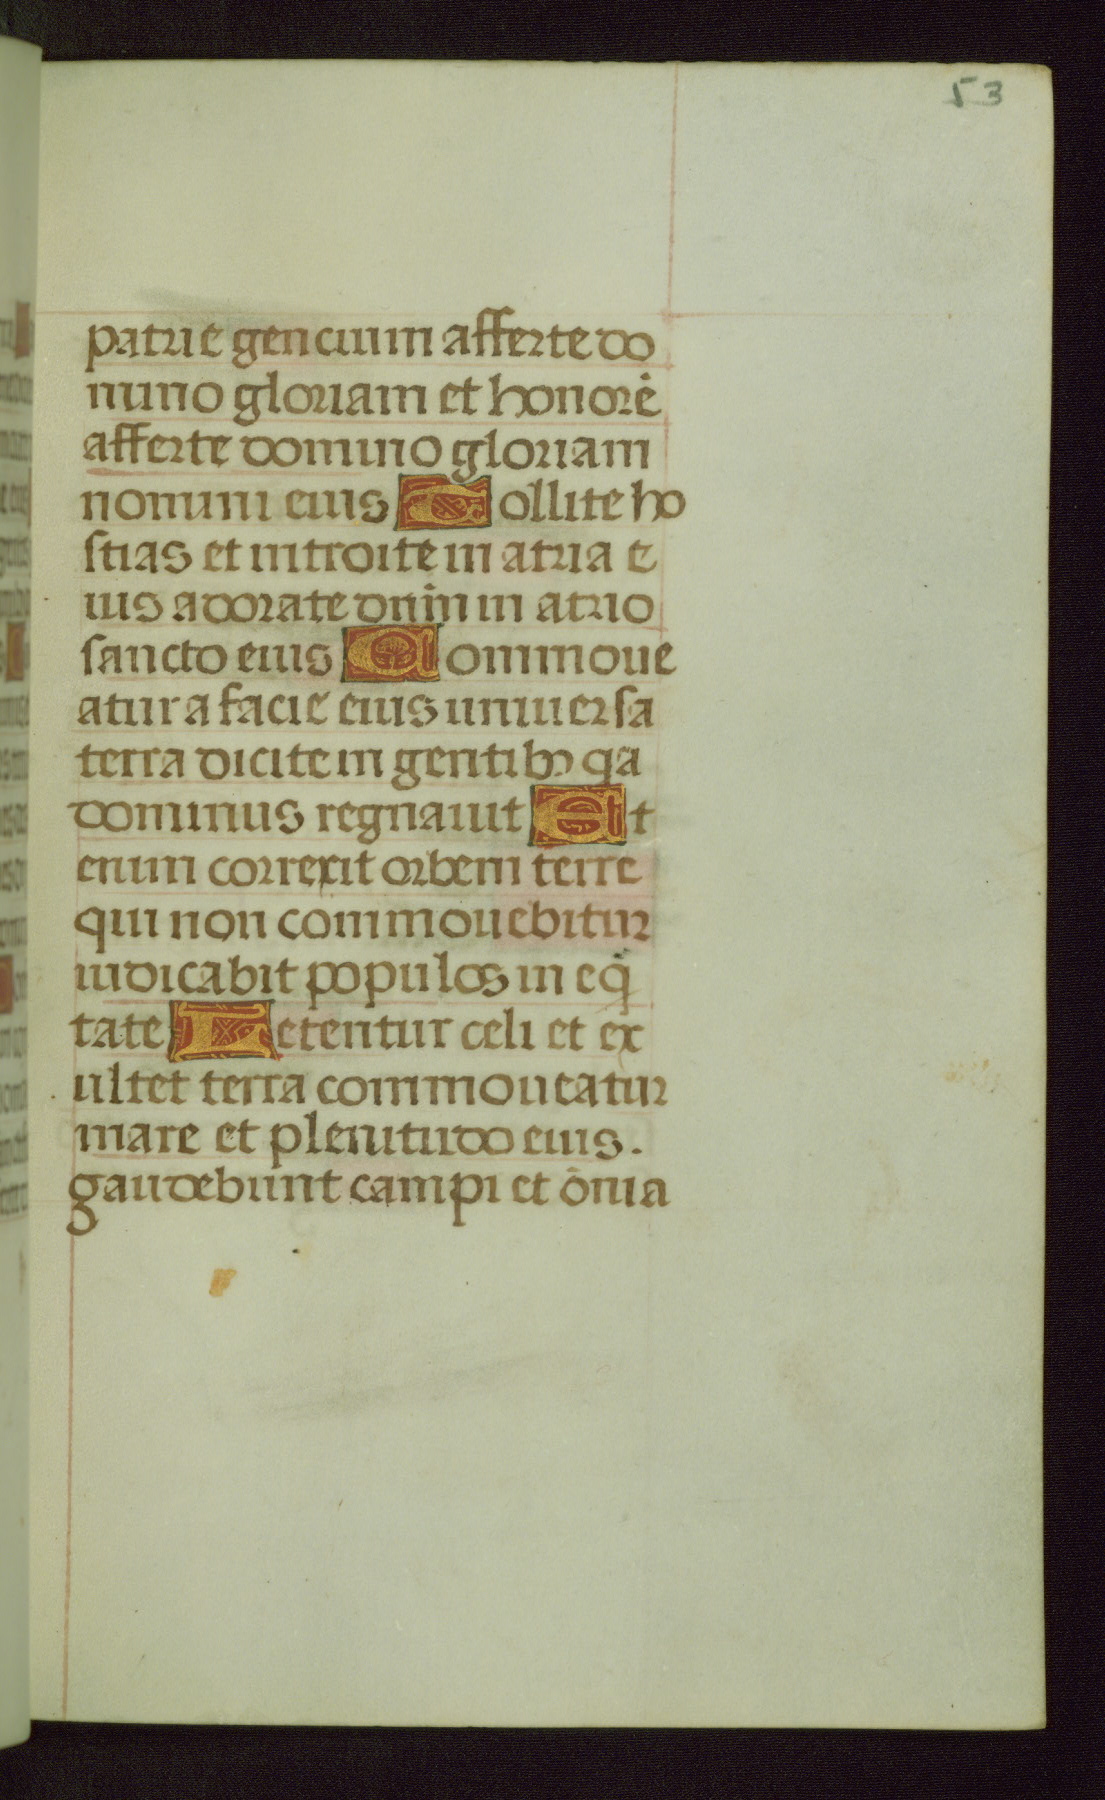 53
patrie gencium afferte do
mino gloriam et honorē
afferte domino gloriam
nomini eius Tollite ho
stias et introite in atria e
ius adorate dnm̄ in atrio
sancto eius Commoue
atur a facie eius uniuersa
terra dicite in gentibꝫ qa
dominus regnauit Et
enim correxit orbem terre
qui non commouebitur
iudicabit populos in eqi
tate Letentur celi et ex
ultet terra commoueatur
mare et plenitudo eius.
gaudebunt campi et ōnia